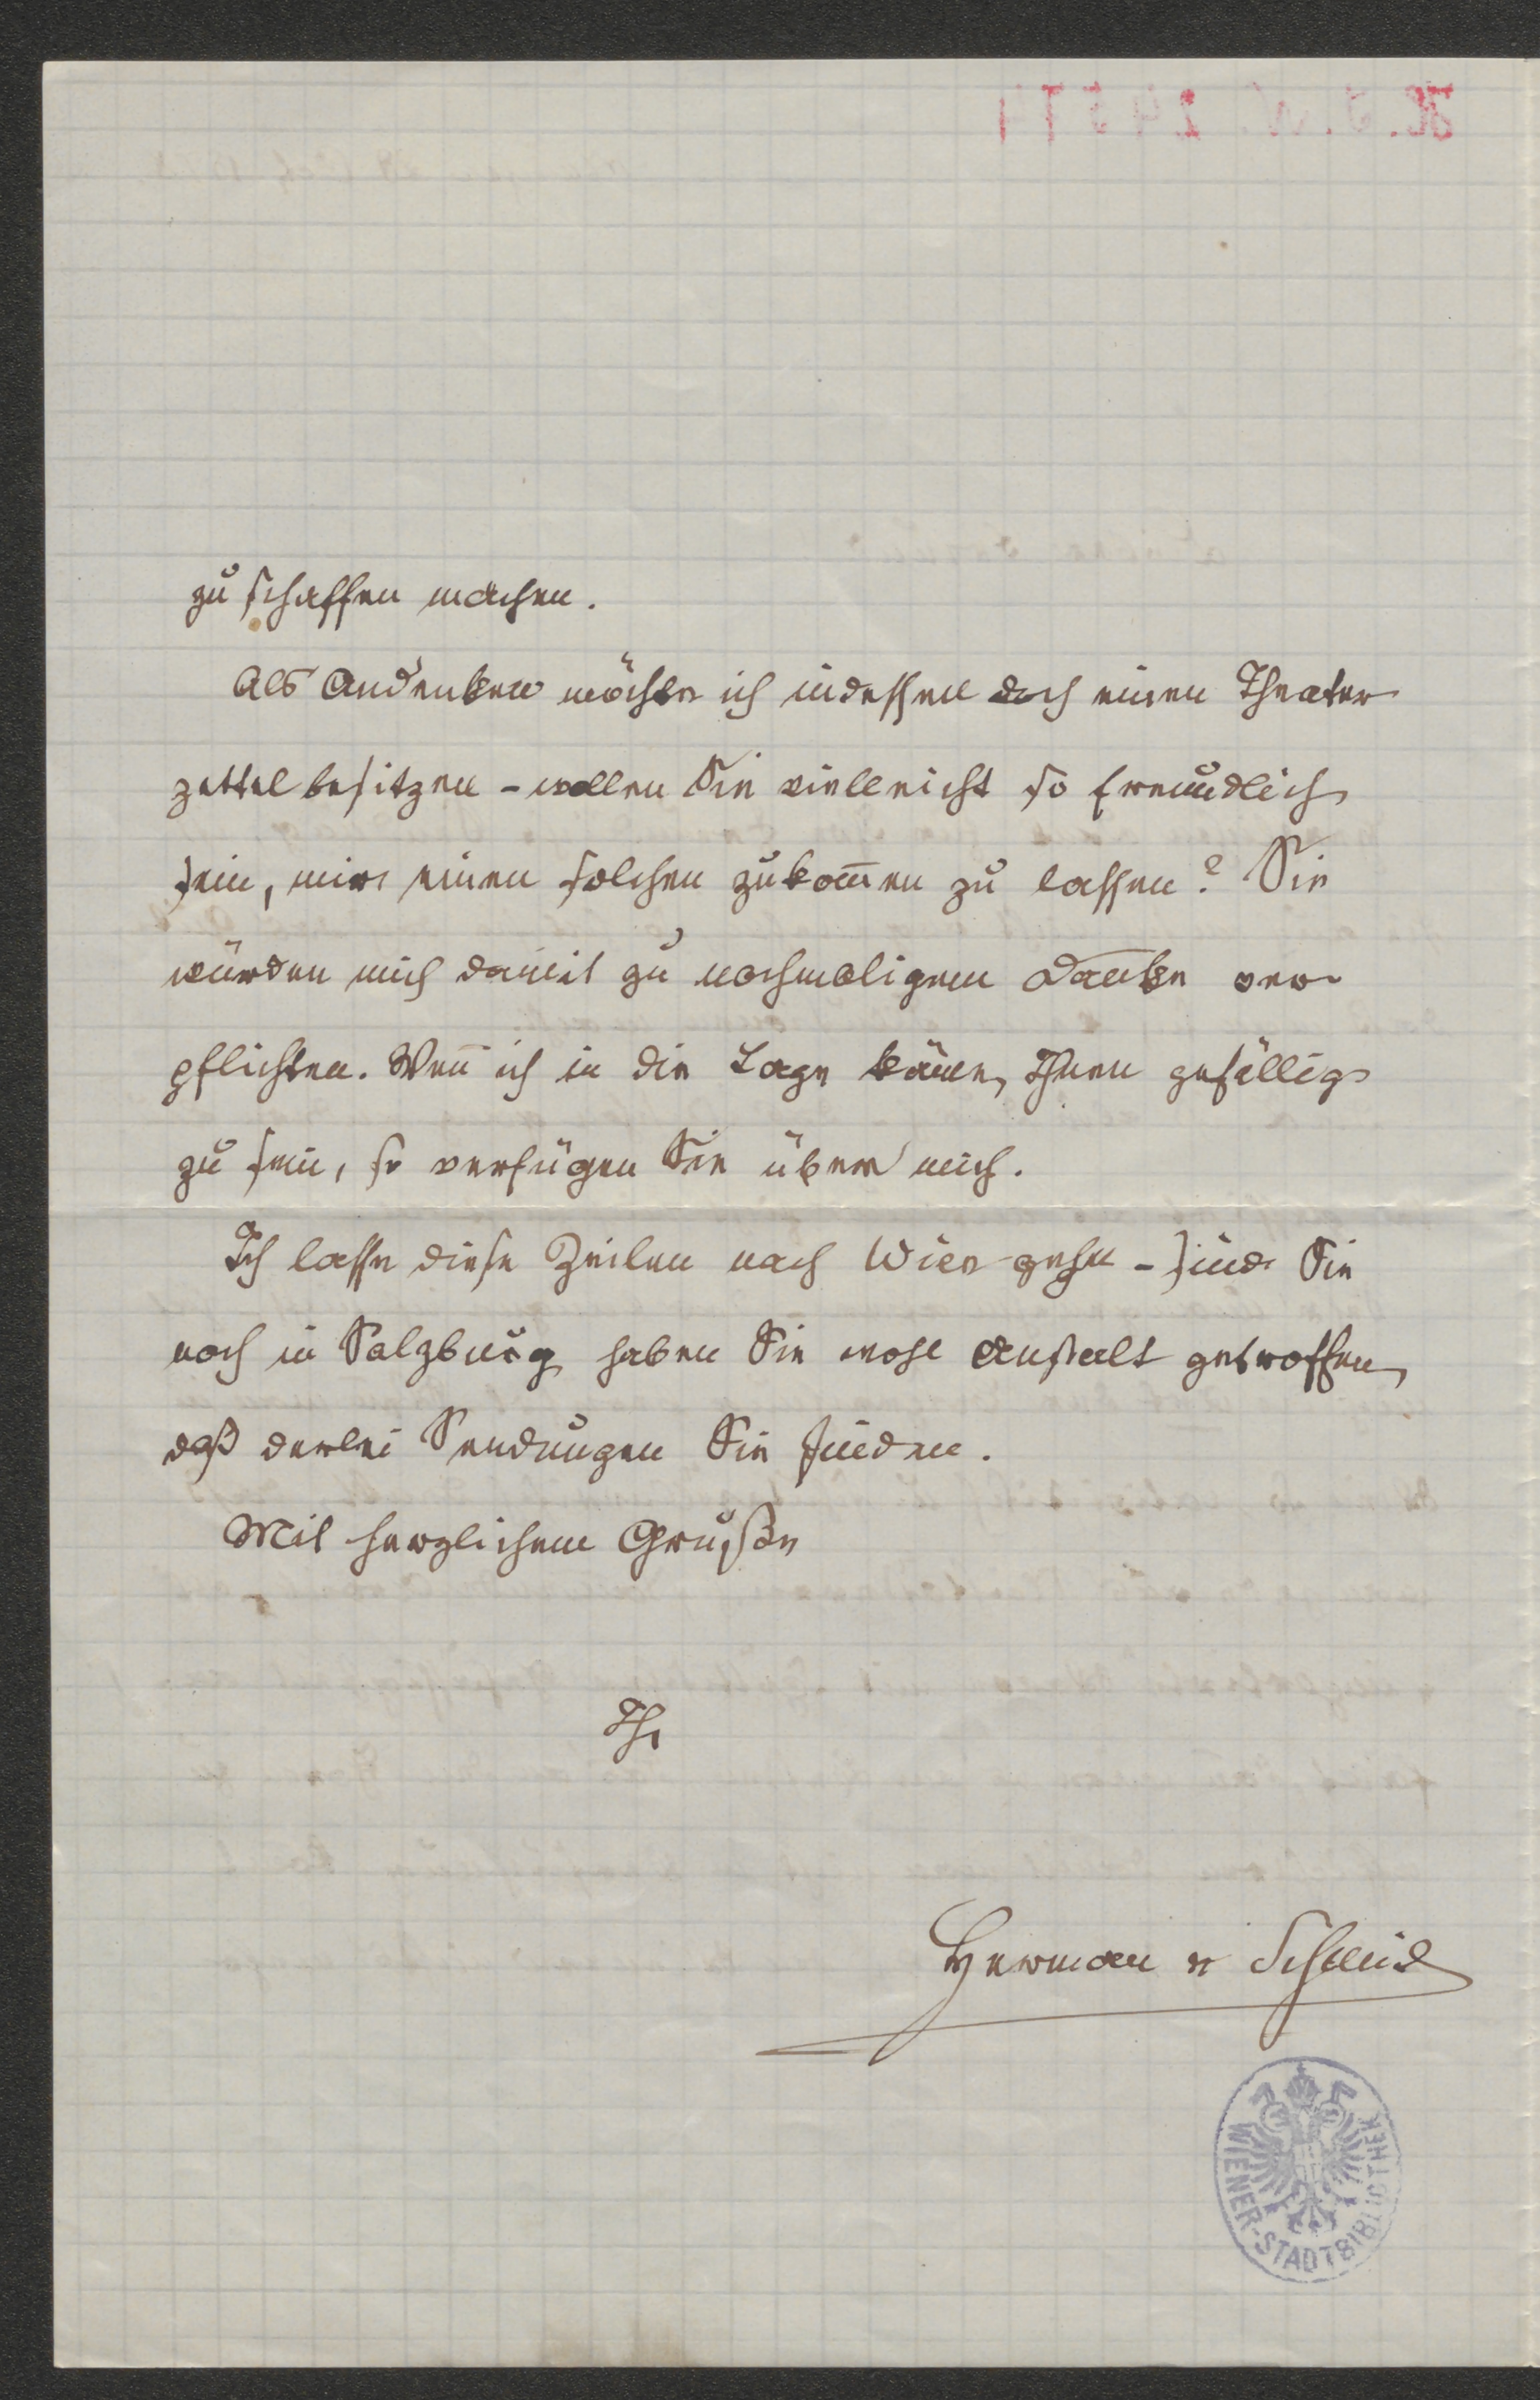 zu schaffen machen.
Als Andenken möchte ich indessen doch einen Theater
zettel besitzen – wollen Sie vielleicht so freundlich
sein, mir einen solchen zukom̅en zu lassen? Sie
würden mich damit zu nochmaligem Danke ver
pflichten. Wen̅ ich in die Lage käme, Ihnen gefällig
zu sein, so verfügen Sie über mich.
Ich lasse diese Zeilen nach Wien gehn – sind Sie
noch in Salzburg haben Sie wohl Anstalt getroffen,
daß derlei Sendungen Sie finden.
Mit herzlichem Gruße
Ihr
Herman v Schmid
WIENER-STADTBIBLIOTHEK